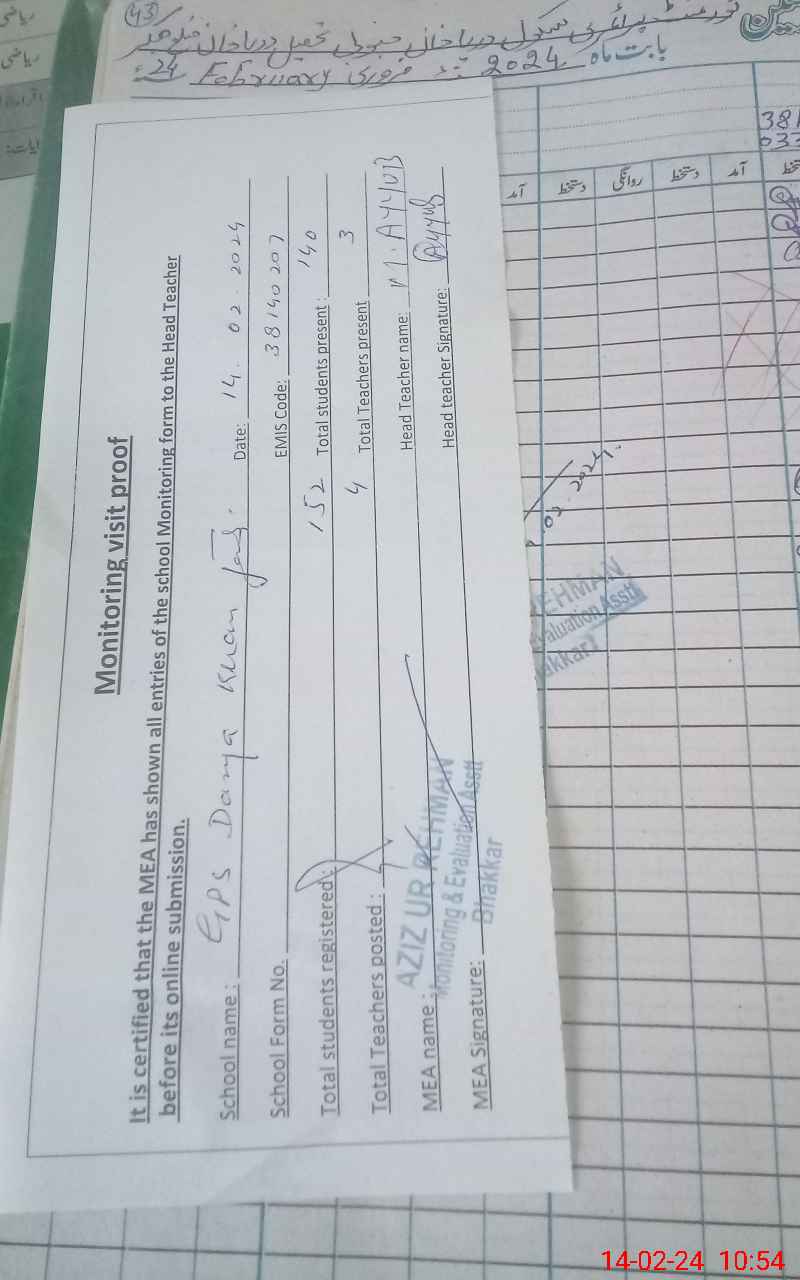 43
گورنمنٹ پرائمری سکول دریا خان جنوبی تحصیل دریا خان ضلع بھکر
بابت ماہ 2024 فروری February 24
آمد دستخط روانگی دستخط آمد
Monitoring visit proof
It is certified that the MEA has shown all entries of the school Monitoring form to the Head Teacher
before its online submission.
School name: GPS Darya Khan Date: 14.02.2024
School Form No. EMIS Code: 38140207
Total students registered: 152 Total students present: 140
Total Teachers posted: 4 Total Teachers present 3
MEA name: AZIZ UR REHMAN Head Teacher name: M. AYYUB
Monitoring & Evaluation Asstt
Bhakkar
MEA Signature: Head teacher Signature: Ayyub
.02.2024.
EHMAN
valuation Asstt
akkar
ریاضی
14-02-24 10:54